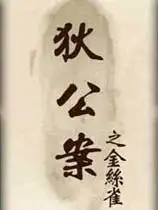 狄公案
之金絲雀